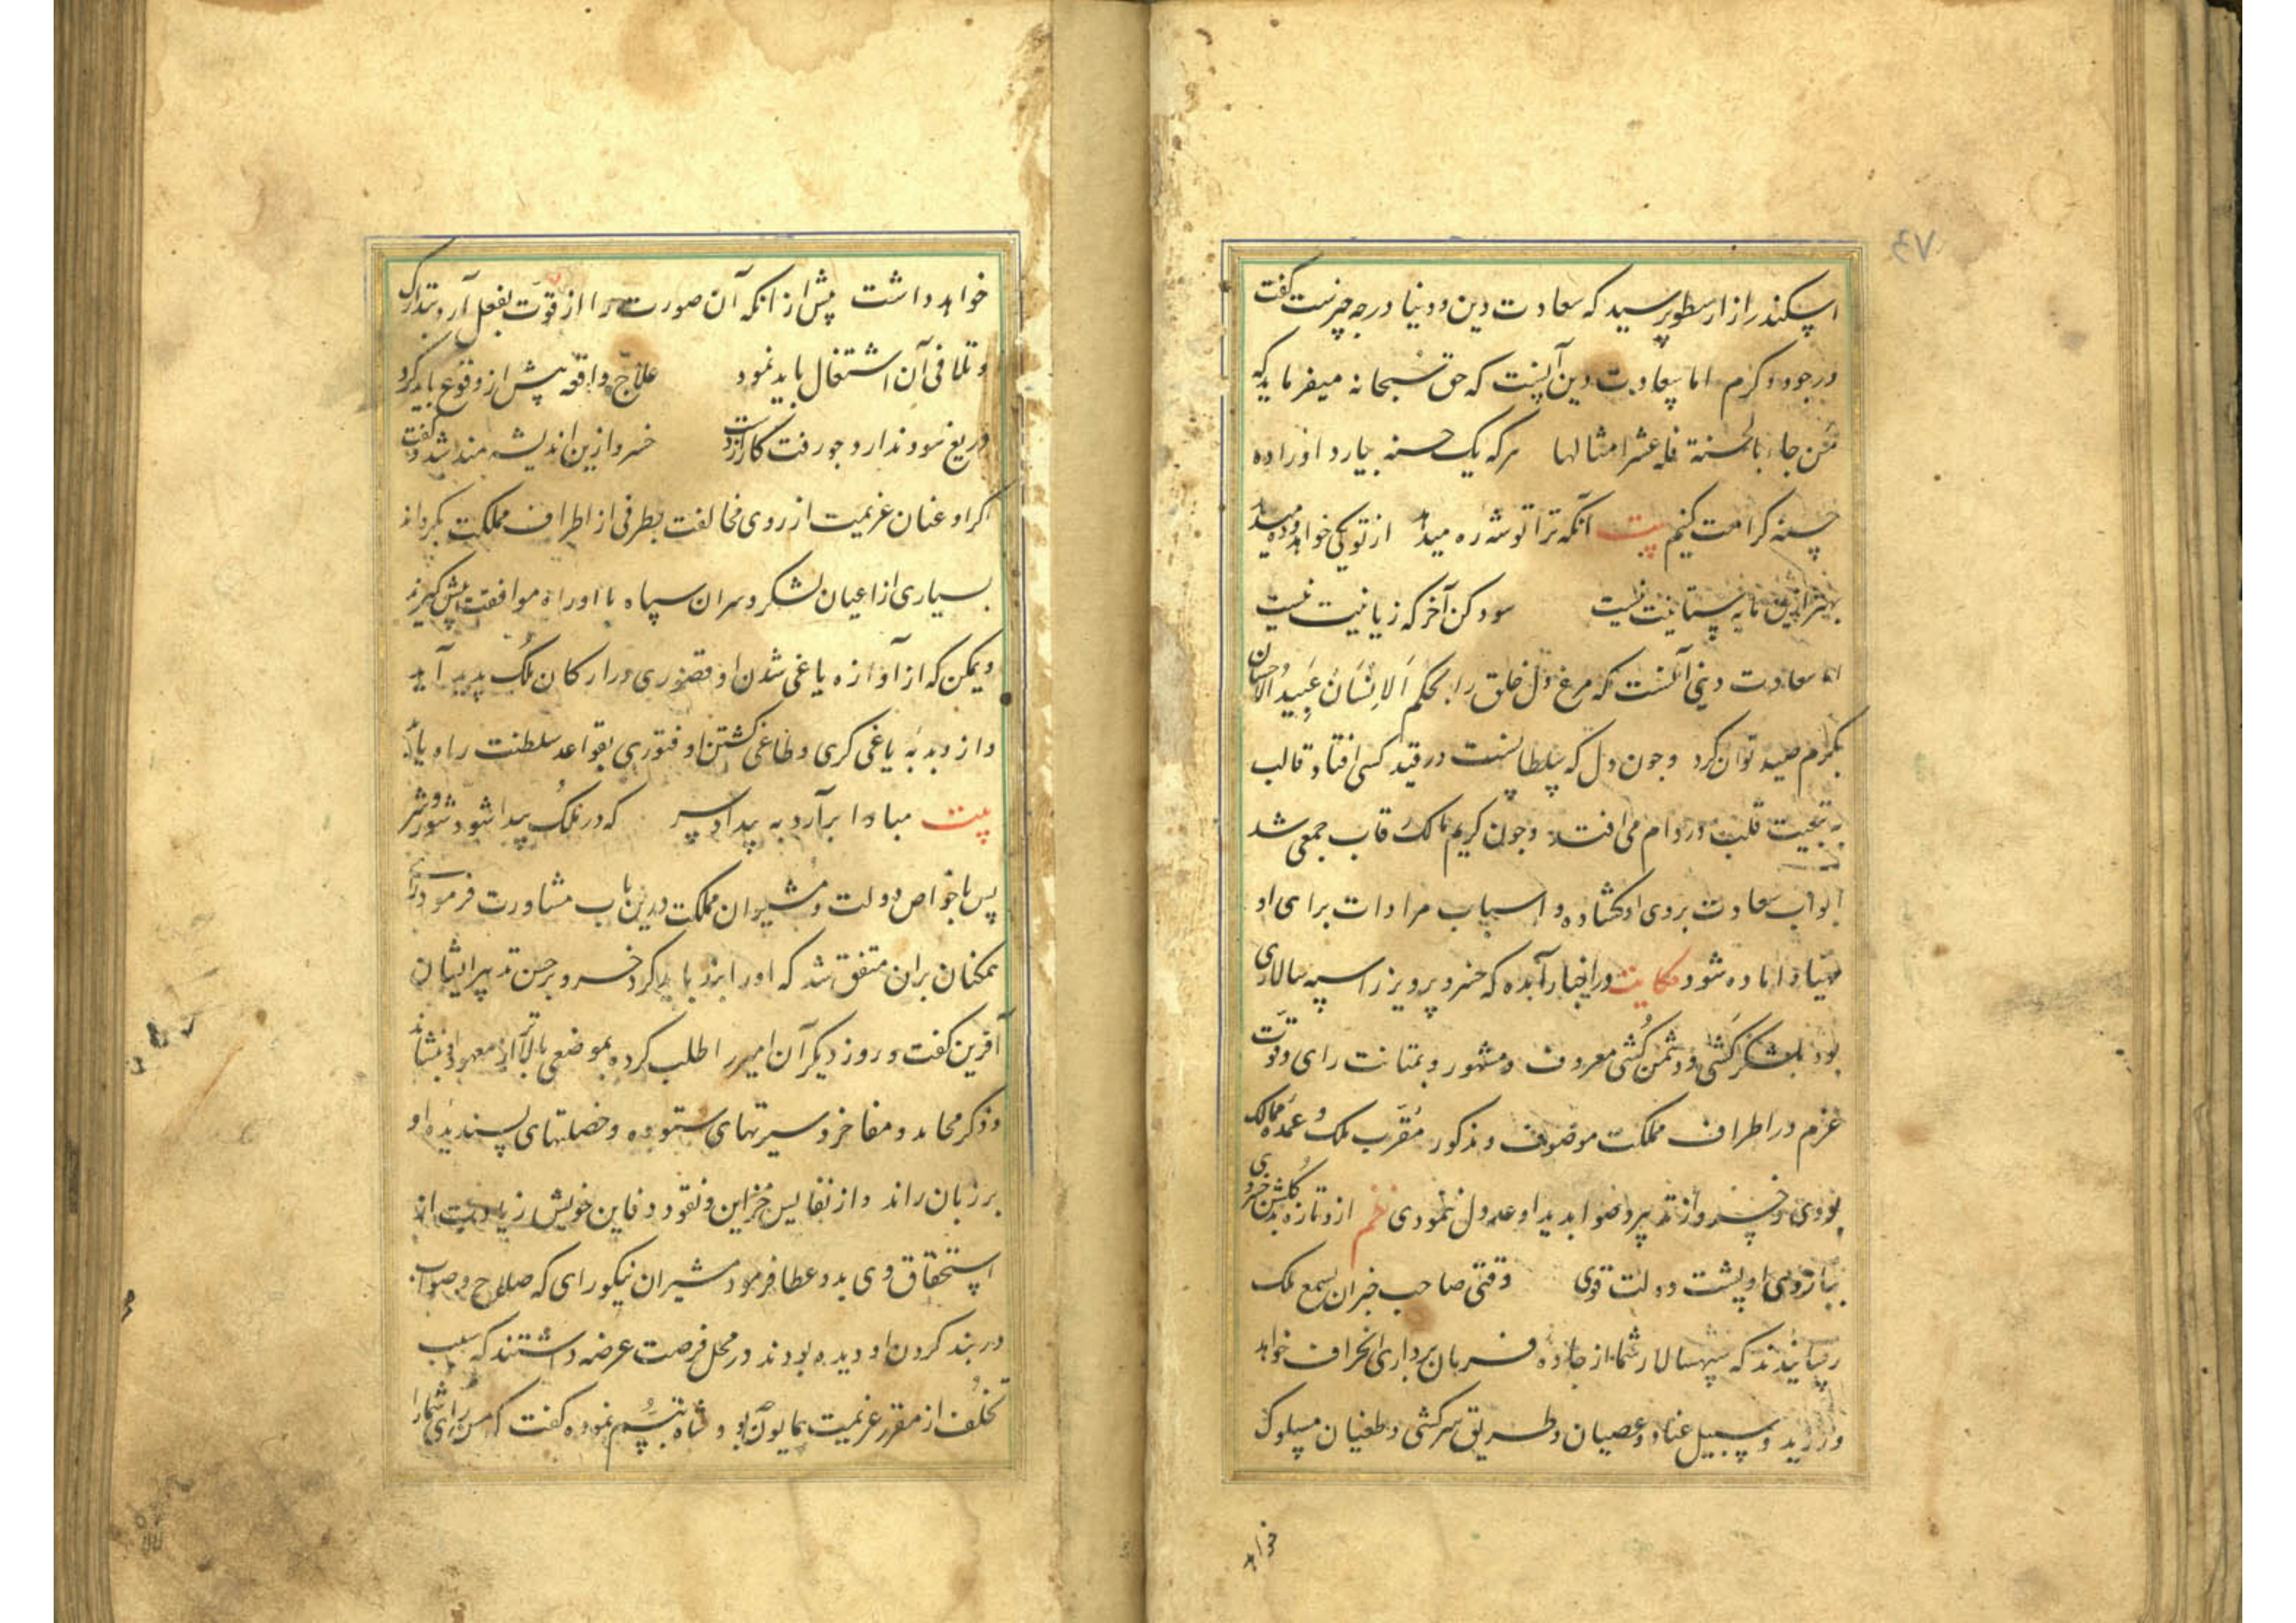 ۷۶
اسکندر از ارسطو پرسید که سعادت دین و دنیا در چه چیزست گفت
در جود و کرم اما سعادت دین آنست که حق سبحانه میفرماید که
من جاء بالحسنة فله عشر امثالها هر که یک حسنه بیارد او را ده
حسنه کرامت کنیم بیت آنکه ترا توشه ره میدهد از تو یکی خواهد و ده میدهد
بهتر ازین مایه ستانیت نیست سود کن آخر که زیانیت نیست
اما سعادت دنیی آنست که مرغ دل خلق را بحکم الانسان عبید الاحسان
بکرم صید توان کرد و چون دل که سلطانست در قید کسی افتاد قالب
به تبعیت قلب در دام می افتد و چون کریم مالک رقاب جمعی شد
ابواب سعادت بروی او کشاده و اسباب مرادات برای او
مهیا و اماده شود حکایت در اخبار آمده که خسرو پرویز را سپه سالاری
بود بلشکرکشی و دشمن کشی معروف و مشهور و بمتانت رای و قوت
عزم در اطراف مملکت موصوف و مذکور مقرب ملک و عمده ممالک
بودی و خسرو از تدبیر و صوابدید او عدول ننمودی نظم ازو تازه بد کلشن خسروی
ببازوی او پشت دولت قوی وقتی صاحب خبران بسمع ملک
رسانیدند که سپهسالار شما از جاده فرمان برداری انحراف خواهد
ورزید و سبیل عناد و عصیان و طریق سرکشی و طغیان مسلوک
خواهد
خواهد داشت پیش از انکه آن صورت را از قوت بفعل آرد بتدارک
و تلافی آن اشتغال باید نمود علاج واقعه پیش از وقوع باید کرد
دریغ سود ندارد چو رفت کار از دست خسرو ازین اندیشه مند شد و گفت
اکر او عنان عزیمت از روی مخالفت بطرفی از اطراف مملکت بکرداند
بسیاری از اعیان لشکر و سران سپاه با او راه موافقت پیش کیرند
و یمکن که از آوازه یاغی شدن او قصوری در ارکان ملک پدید آید
و از دبدبه یاغی کری و طاغی کشتن او فتوری بقواعد سلطنت راه یابد
بیت مبادا برآرد به بیداد سر که در ملک پیدا شود شور و شر
پس با خواص دولت و مشیران مملکت درین باب مشاورت فرمود رای
همکنان بران متفق شد که او را بند باید کرد خسرو بر حسن تدبیر ایشان
آفرین کفت و روز دیکر آن امیر را طلب کرده بموضعی بالاتر از معهود بنشاند
و ذکر محامد و مفاخر و سیرتهای ستوده و خصلتهای پسندیده او
بر زبان راند و از نفایس خزاین و نقود دفاین خویش زیادت از
استحقاق وی بدو عطا فرمود مشیران نیکورای که صلاح و صواب
در بند کردن او دیده بودند در محل فرصت عرضه داشتند که سبب
تخلف از مقرر عزیمت همایون چه بود شاه تبسم نموده کفت که من رای شما را